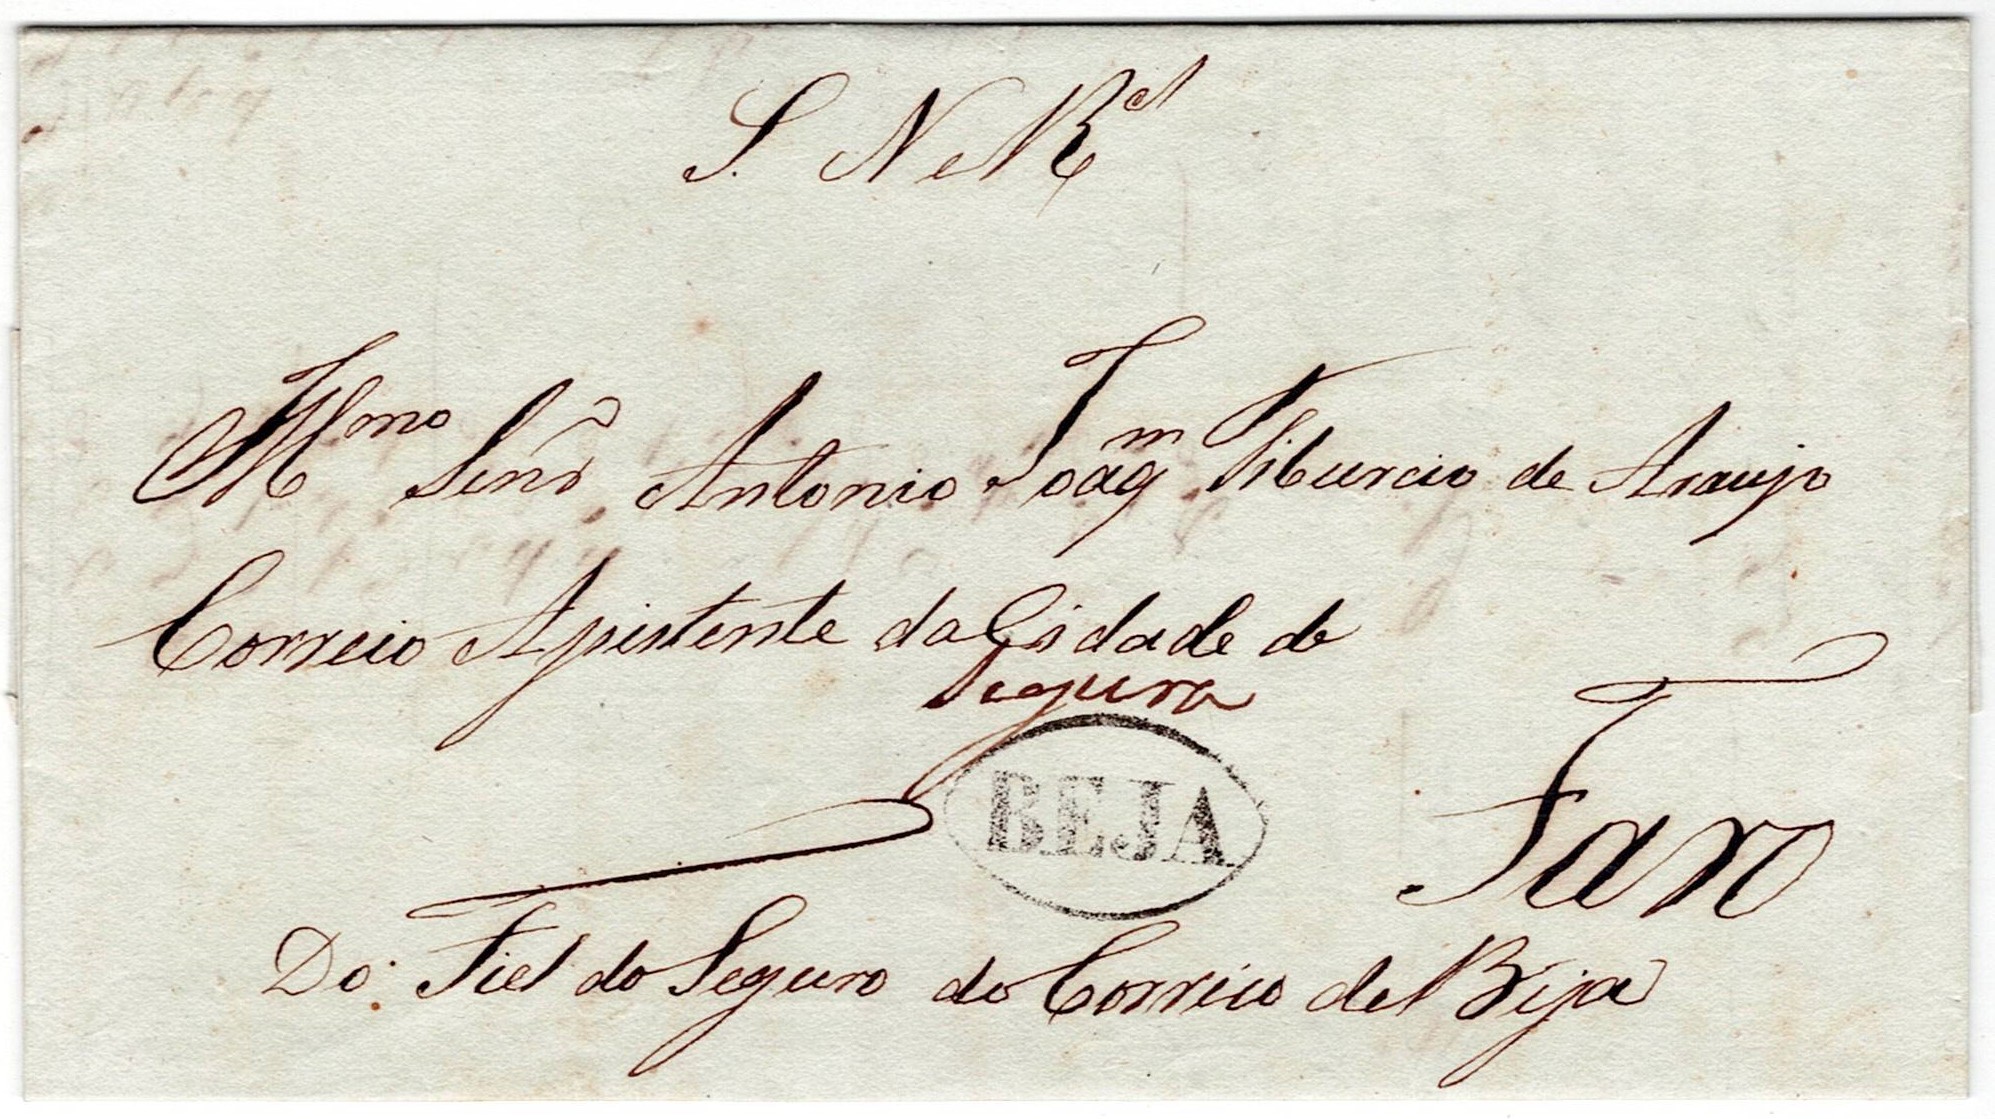 S. N e R.al
Illmo Senr Antonio Joaqm Tiburcio de Araujo
Correio Assistente da Cidade de
Segura
BEJA
Faro
Do Fiel do Seguro do Correio de Beja